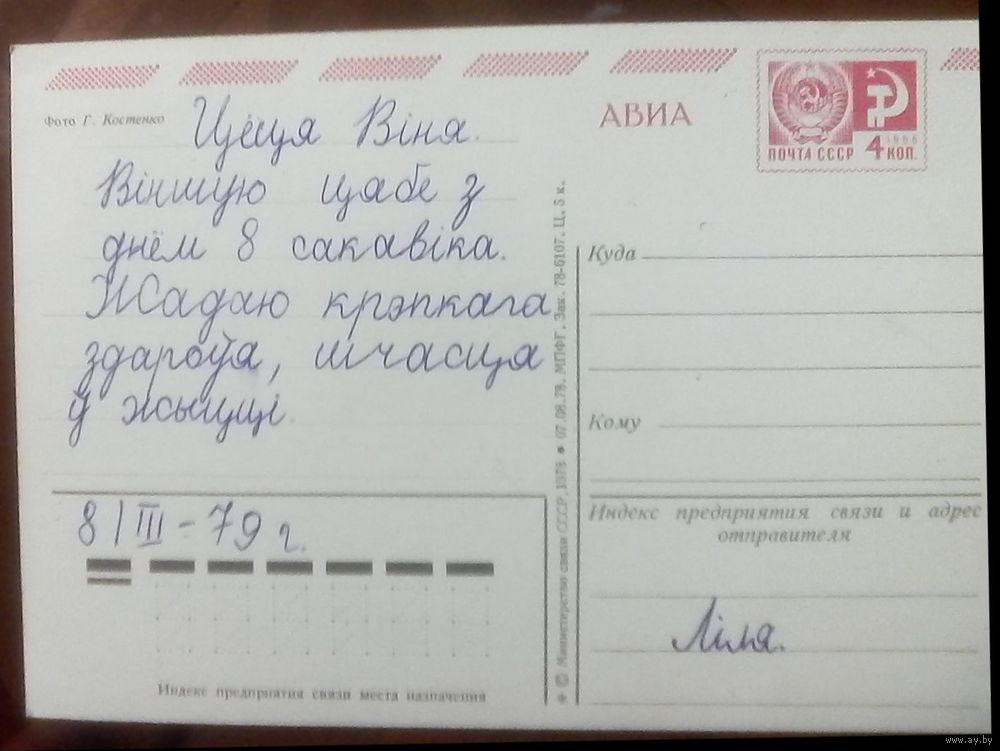 Фото Г. Костенко
Цёця Віня.
Віншую цябе з
днём 8 сакавіка.
Жадаю крэпкага
здароўя, шчасця
ў жыцці.
8/III-79 г.
Индекс предприятия связи места назначения
✶ © Министерство связи СССР, 1978 ● 07.08.78. МПФГ, Зак. 78-6107. Ц. 5 к.
АВИА
ПОЧТА СССР
1966
4 КОП.
Куда
Кому
Индекс предприятия связи и адрес
отправителя
Ліля.
www.ay.by